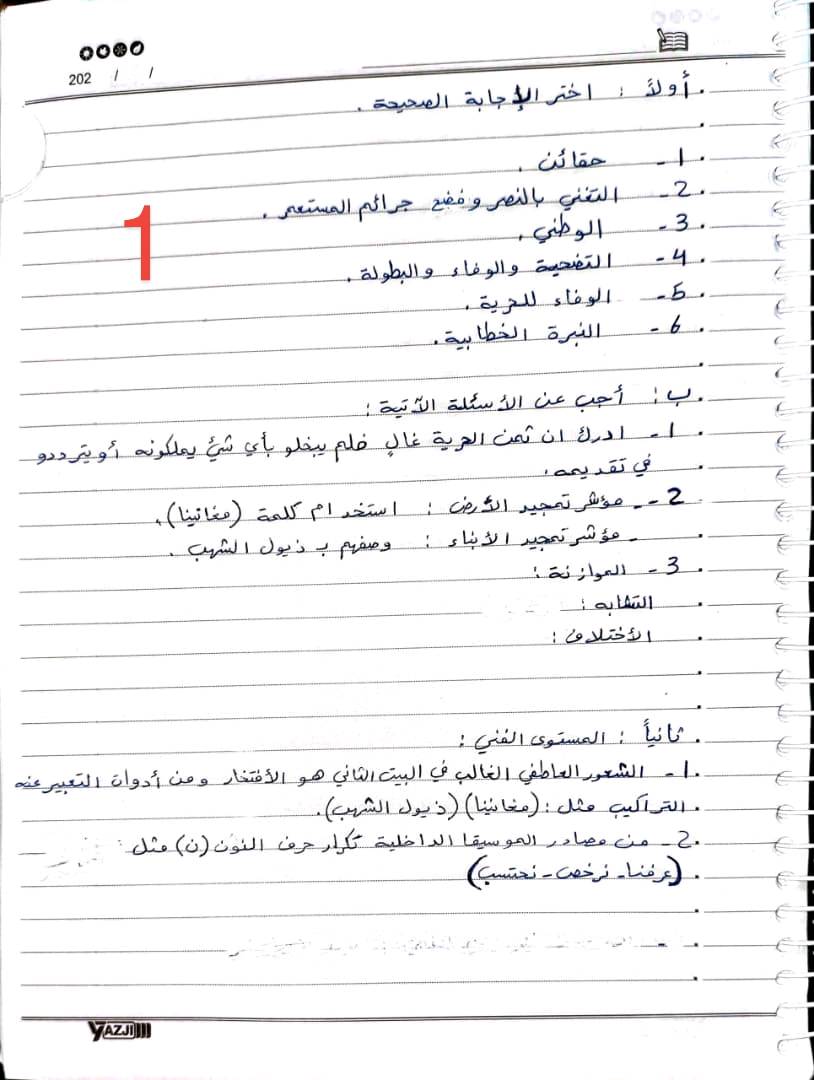 202 / /
أولاً : اختر الإجابة الصحيحة .
1- حقائن .
2- التغني بالنصر وفضح جرائم المستعمر .
1
3- الوطني .
4- التضحية والوفاء والبطولة .
5- الوفاء للحرية .
6- النبرة الخطابية .
ب : أجب عن الأسئلة الآتية :
1- ادرك ان ثمن الحرية غالٍ فلم يبخلو بأي شيء يملكونه أو يترددو
في تقديمه .
2- - مؤشر تمجيد الأرض : استخدام كلمة (مغانينا) .
- مؤشر تمجيد الأبناء : وصفهم بـ ذيول الشهب .
3- الموازنة :
التشابه :
الأختلاف :
ثانياً : المستوى الفني :
1- الشعور العاطفي الغالب في البيت الثاني هو الأفتخار ومن أدوات التعبير عنه
التراكيب مثل : (مغانينا) (ذيول الشهب) .
2- من مصادر الموسيقا الداخلية تكرار حرف النون (ن) مثل :
(عرفنا - نرخص - نحتسب)
YAZJI